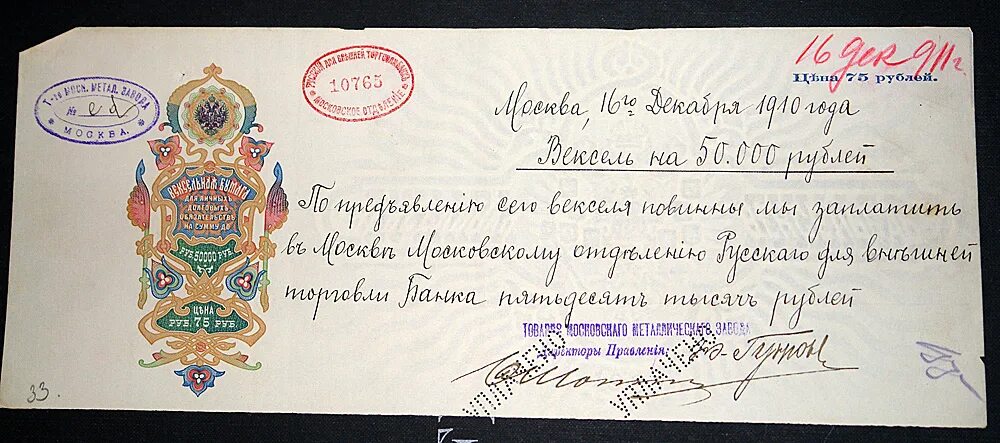 16 дек 911 г.
Цѣна 75 рублей.
Т-во МОСК. МЕТАЛ. ЗАВОДА
№
МОСКВА.
РУССКІЙ ДЛЯ ВНѢШНЕЙ ТОРГОВЛИ БАНКЪ
10765
МОСКОВСКОЕ ОТДѢЛЕНІЕ
Москва, 16го Декабря 1910 года
Вексель на 50.000 рублей
ВЕКСЕЛЬНАЯ БУМАГА
ДЛЯ ЛИЧНЫХЪ
ДОЛГОВЫХЪ
ОБЯЗАТЕЛЬСТВЪ
НА СУММУ ДО
РУБ. 50000 РУБ.
ЦѢНА
РУБ. 75 РУБ.
По предъявленію сего векселя повинны мы заплатить
въ Москвѣ Московскому отдѣленію Русскаго для внѣшней
торговли Банка пятьдесятъ тысячъ рублей
ТОВАРИЩ. МОСКОВСКАГО МЕТАЛЛИЧЕСКАГО ЗАВОДА
Директоры Правленія:
УПЛАЧЕНО
УПЛАЧЕНО
33.